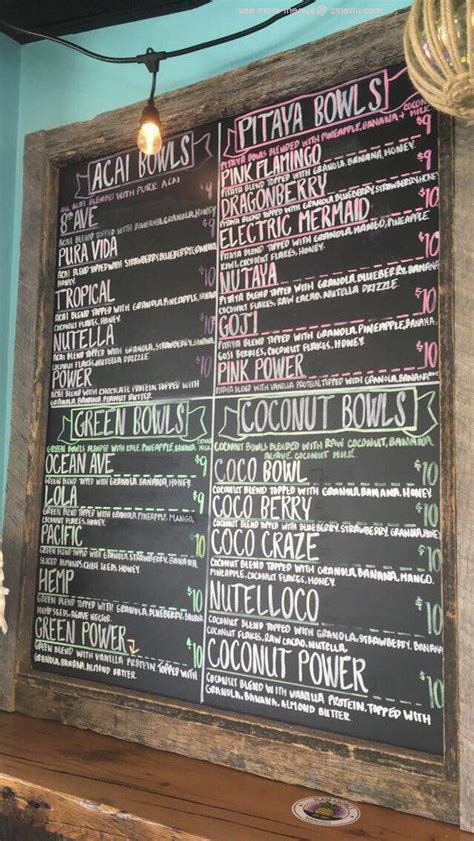 see more menus @ zmenu.com
ACAI BOWLS
ALL ACAI BLENDED WITH PURE ACAI
8th AVE $9
ACAI BLEND TOPPED WITH BANANA, GRANOLA, HONEY
PURA VIDA $9
ACAI BLEND TOPPED WITH STRAWBERRY, BLUEBERRY, GRANOLA,
HONEY
TROPICAL $10
ACAI BLEND TOPPED WITH GRANOLA, PINEAPPLE, BANANA,
COCONUT FLAKES, HONEY
NUTELLA $10
ACAI BLEND TOPPED WITH GRANOLA, STRAWBERRY, BANANA,
COCONUT FLAKES, NUTELLA DRIZZLE
POWER $10
ACAI BLEND WITH CHOCOLATE PROTEIN, TOPPED WITH
GRANOLA BANANA PEANUT BUTTER
PITAYA BOWLS
PITAYA BOWLS BLENDED WITH PINEAPPLE, BANANA + COCONUT MILK
PINK FLAMINGO $9
PITAYA BLEND TOPPED WITH GRANOLA, BANANA, HONEY
DRAGONBERRY $9
PITAYA BLEND TOPPED WITH BLUEBERRY, STRAWBERRY, GRANOLA, HONEY
ELECTRIC MERMAID $10
PITAYA BLEND TOPPED WITH GRANOLA, MANGO, PINEAPPLE,
KIWI, COCONUT FLAKES, HONEY
NUTAYA $10
PITAYA BLEND TOPPED WITH GRANOLA, BLUEBERRY, BANANA
COCONUT FLAKES, RAW CACAO, NUTELLA DRIZZLE
GOJI $10
PITAYA BLEND TOPPED WITH GRANOLA, PINEAPPLE, BANANA,
GOJI BERRIES, COCONUT FLAKES, HONEY
PINK POWER $10
PITAYA BLEND WITH VANILLA PROTEIN, TOPPED WITH GRANOLA, BANANA
GREEN BOWLS
GREEN BOWLS BLENDED WITH KALE, PINEAPPLE, BANANA,
OCEAN AVE $9
GREEN BLEND TOPPED WITH GRANOLA, BANANA, HONEY
LOLA $9
GREEN BLEND TOPPED WITH GRANOLA, PINEAPPLE, MANGO,
COCONUT FLAKES, HONEY
PACIFIC $10
GREEN BLEND TOPPED WITH GRANOLA, STRAWBERRY, BANANA,
SLICED ALMONDS, CHIA SEEDS, HONEY
HEMP $10
GREEN BLEND TOPPED WITH GRANOLA, BLUEBERRY, BANANA,
HEMP SEEDS, AGAVE NECTAR
GREEN POWER $10
GREEN BLEND WITH VANILLA PROTEIN TOPPED WITH
GRANOLA, BANANA, ALMOND BUTTER
COCONUT BOWLS
COCONUT BOWLS BLENDED WITH RAW COCONUT, BANANA,
AGAVE, COCONUT MILK
COCO BOWL $10
COCONUT BLEND TOPPED WITH GRANOLA, BANANA, HONEY
COCO BERRY $10
COCONUT BLEND TOPPED WITH BLUEBERRY, STRAWBERRY, GRANOLA, HONEY
COCO CRAZE $10
COCONUT BLEND TOPPED WITH GRANOLA, BANANA, MANGO
PINEAPPLE, COCONUT FLAKES, HONEY
NUTELLOCO $10
COCONUT BLEND TOPPED WITH GRANOLA, STRAWBERRY, BANANA
COCONUT FLAKES, RAW CACAO, NUTELLA
COCONUT POWER $10
COCONUT BLEND WITH VANILLA PROTEIN, TOPPED WITH
GRANOLA, BANANA, ALMOND BUTTER